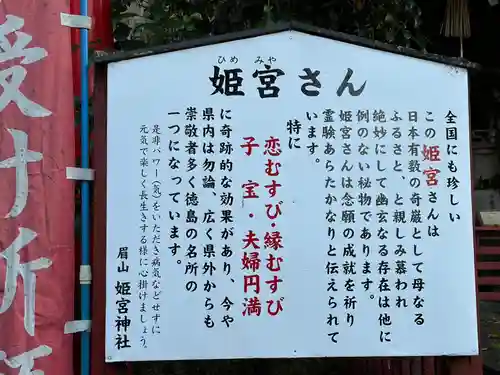 ひめ みや
姫宮さん
全国にも珍しい
この姫宮さんは
日本有数の奇巌として母なる
ふるさと、と親しみ慕われ
絶妙にして幽玄なる存在は他に
例のない秘物であります。
姫宮さんは念願の成就を祈り
霊験あらたかなりと伝えられて
います。
特に
恋むすび・縁むすび
子宝・夫婦円満
に奇跡的な効果があり、今や
県内は勿論、広く県外からも
崇敬者多く徳島の名所の
一つになっています。
是非パワー(気)をいただき病気などせずに
元気で楽しく長生きする様に心掛けましょう。
眉山 姫宮神社
受け所